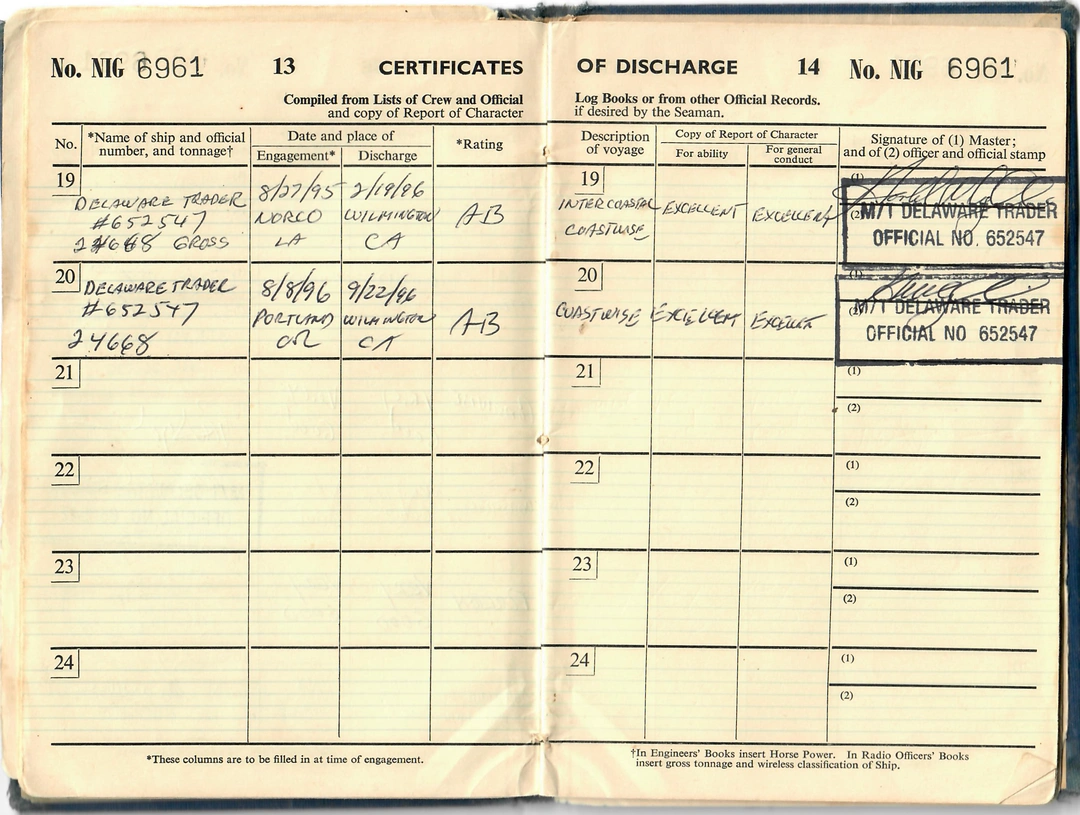 No. NIG 6961 13 CERTIFICATES OF DISCHARGE 14 No. NIG 6961
Compiled from Lists of Crew and Official Log Books or from other Official Records.
and copy of Report of Character if desired by the Seaman.
No.
*Name of ship and official
number, and tonnage†
Date and place of
Engagement* Discharge
*Rating
Description
of voyage
Copy of Report of Character
For ability
For general
conduct
Signature of (1) Master;
and of (2) officer and official stamp
19
DELAWARE TRADER
#652547
24668 GROSS
8/27/95
NORCO
LA
2/19/96
WILMINGTON
CA
AB
19
INTERCOASTAL
COASTWISE
EXCELLENT
EXCELLENT
(1)
(2)
M/T DELAWARE TRADER
OFFICIAL NO. 652547
20
DELAWARE TRADER
#652547
24668
8/8/96
PORTLAND
OR
9/22/96
WILMINGTON
CA
AB
20
COASTWISE
EXCELLENT
EXCELLENT
(1)
(2)
M/T DELAWARE TRADER
OFFICIAL NO 652547
21
21
(1)
(2)
22
22
(1)
(2)
23
23
(1)
(2)
24
24
(1)
(2)
*These columns are to be filled in at time of engagement.
†In Engineers' Books insert Horse Power. In Radio Officers' Books
insert gross tonnage and wireless classification of Ship.